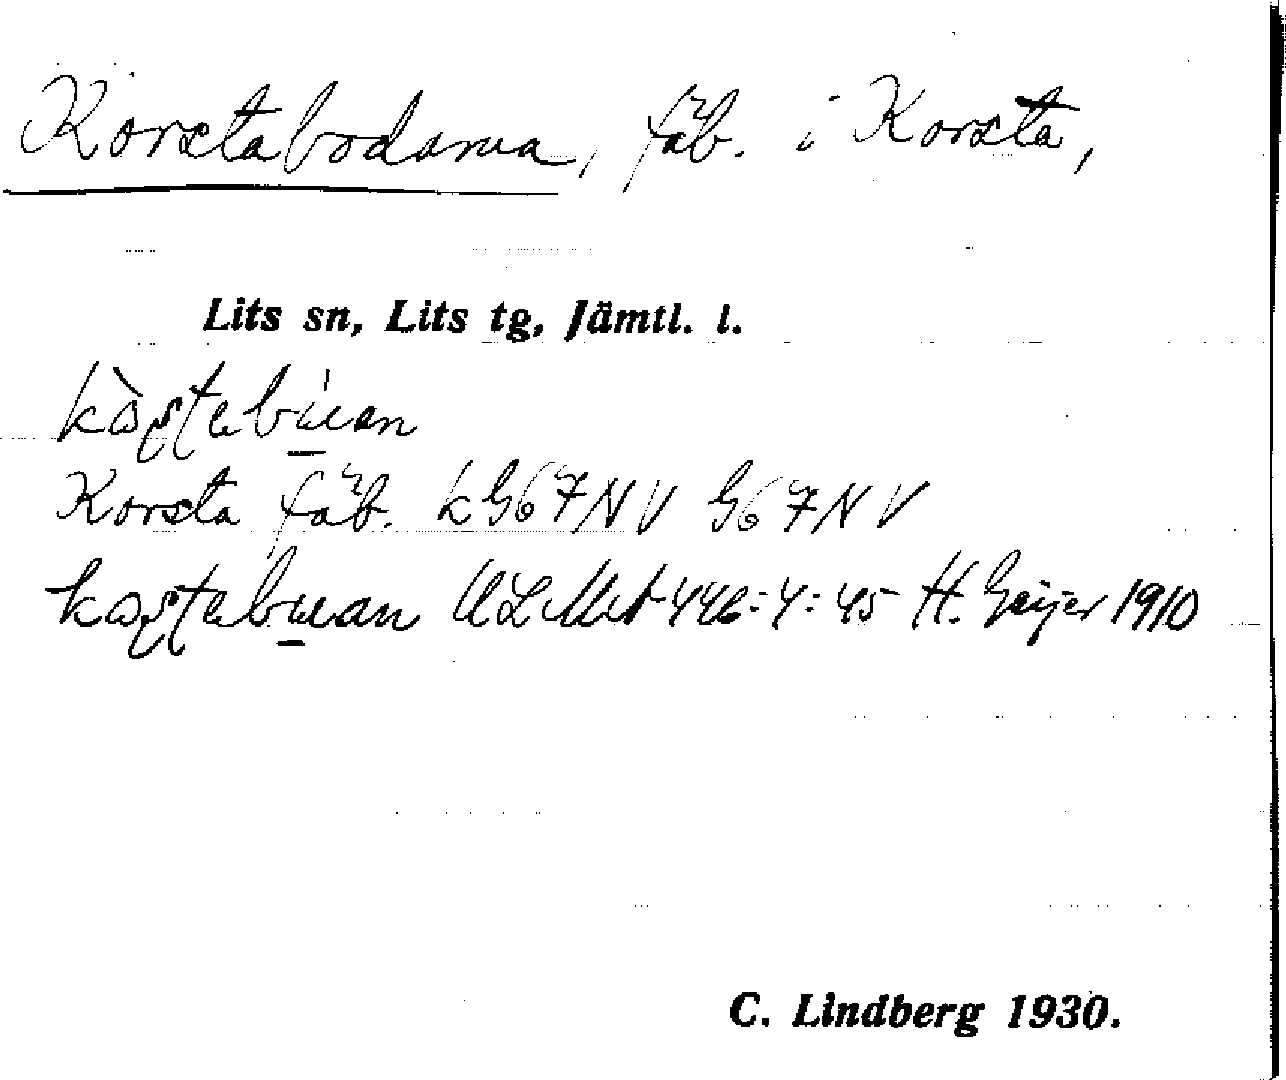 Korstabodarna, fäb. i Korsta,
Lits sn, Lits tg, Jämtl. l.
Korsta fäb. kG67NV G67NV
446:4:45 H. Geijer 1910
C. Lindberg 1930.